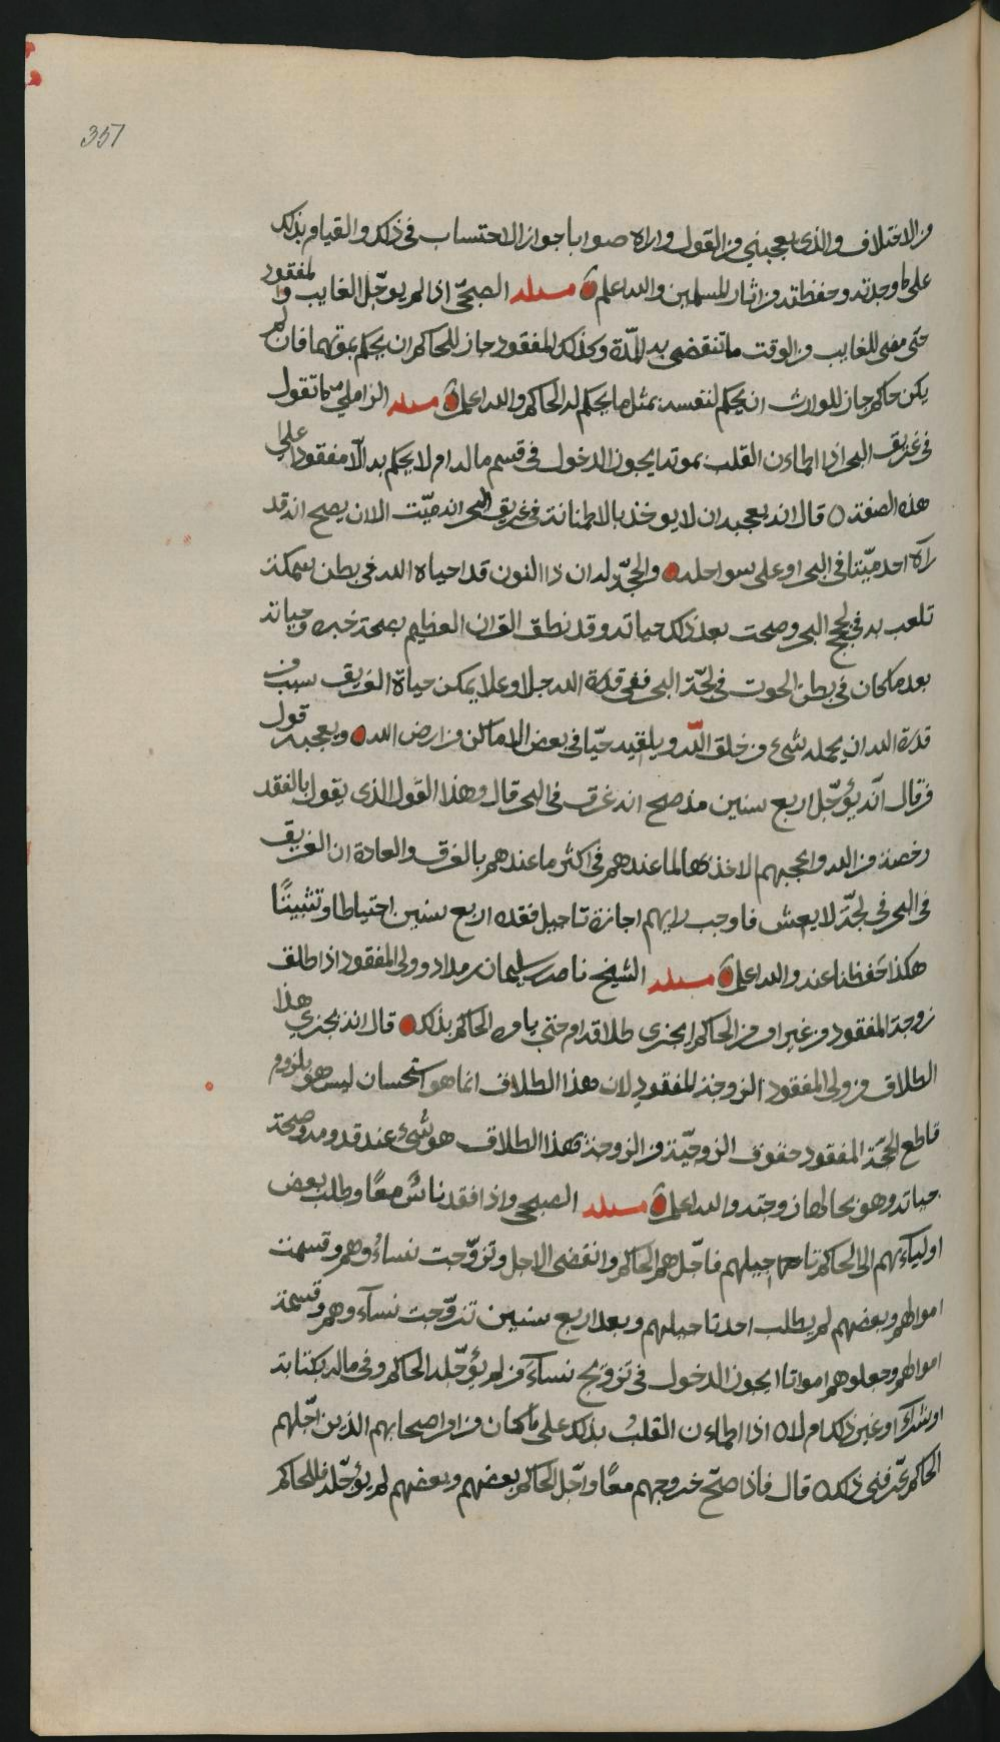 357
من الاختلاف والذي يعجبني من القول واراه صوابا جواز الاحتساب في ذلك والقيام بذلك
على ما وجدته وحفظته من اثار المسلمين والله اعلم مسئلة الصبحي اذا لم يؤجل الغايب والمفقود
حتى مضى للغايب من الوقت ما تنقضي به المدة وكذلك المفقود جاز للحاكم ان يحكم بموتهما فان لم
يكن حاكم جاز للوارث ان يحكم لنفسه بمثل ما يحكم له الحاكم والله اعلم مسئلة الزاملي ما تقول
في غريق البحر اذا اطماءن القلب بموته ايجوز الدخول في قسم ماله ام لا يحكم به الا مفقودا على
هذه الصفة قال انه يعجبه ان لا يوخذ بالاطمنانة في غريق البحر انه ميّت الا ان يصح انه قد
رآه احد ميّتا في البحر او على سواحله والحجّة له ان ذا النون قد احياه الله في بطن سمكة
تلعب به في لجج البحر وصحت بعد ذلك حياته وقد نطق القران العظيم بصحة خبره وحياته
بعد ما كان في بطن الحوت في لجّة البحر ففي قدرة الله جل وعلا يمكن حياة الغريق
قدرة الله ان يحمله شيء من خلق الله ويلقيه حيّا في بعض الاماكن من ارض الله ويعجبه قول
من قال انّه يؤجّل اربع سنين مذ صح انه غرق في البحر قال وهذا القول الذي يقول بالفقد
رخصة من الله واعجبهم الاخذ بها لما عندهم في اكثر ما عندهم بالغرق والعادة ان الغريق
في البحر في لجّة لا يعيش فاوجب رايهم اجازة تاجيل فقده اربع سنين احتياطا وتثبيتًا
هكذا حفظنا عنه والله اعلم مسئلة الشيخ ناصر بن سليمان بن مداد وولي المفقود اذا طلق
زوجة المفقود من غير امر من الحاكم ايجزي طلاقه ام حتى يامره الحاكم بذلك قال انه يجزي هذا
الطلاق من ولي المفقود الزوجة المفقود لان هذا الطلاق انما هو استحسان ليس هو بلزوم
قاطع لحجّة المفقود حقوق الزوجيّة من الزوجة بهذا الطلاق هو شيء عند قدومه وصحة
حياته وهو بحالها زوجته والله اعلم مسئلة الصبحي واذا فقد ناس معًا وطلب بعض
اوليائهم الى الحاكم تاجيلهم فاجّلهم الحاكم وانقضى الاجل وتزوّجت نساؤهم وقسمت
اموالهم وبعضهم لم يطلب احد تاجيلهم وبعد اربع سنين تزوّجت نساؤهم وقسمة
اموالهم وجعلوهم امواتا ايجوز الدخول في تزويج نساء من لم يؤجّله الحاكم وفي ماله بكتابة
او شراء او غير ذلك ام لا اذا اطماءن القلب بذلك على ما كان من امر اصحابهم الذين اجّلهم
الحاكم عرّفني ذلك قال فاذا صحّ خروجهم معًا واجّل الحاكم بعضهم وبعضهم لم يؤجّله فللحاكم